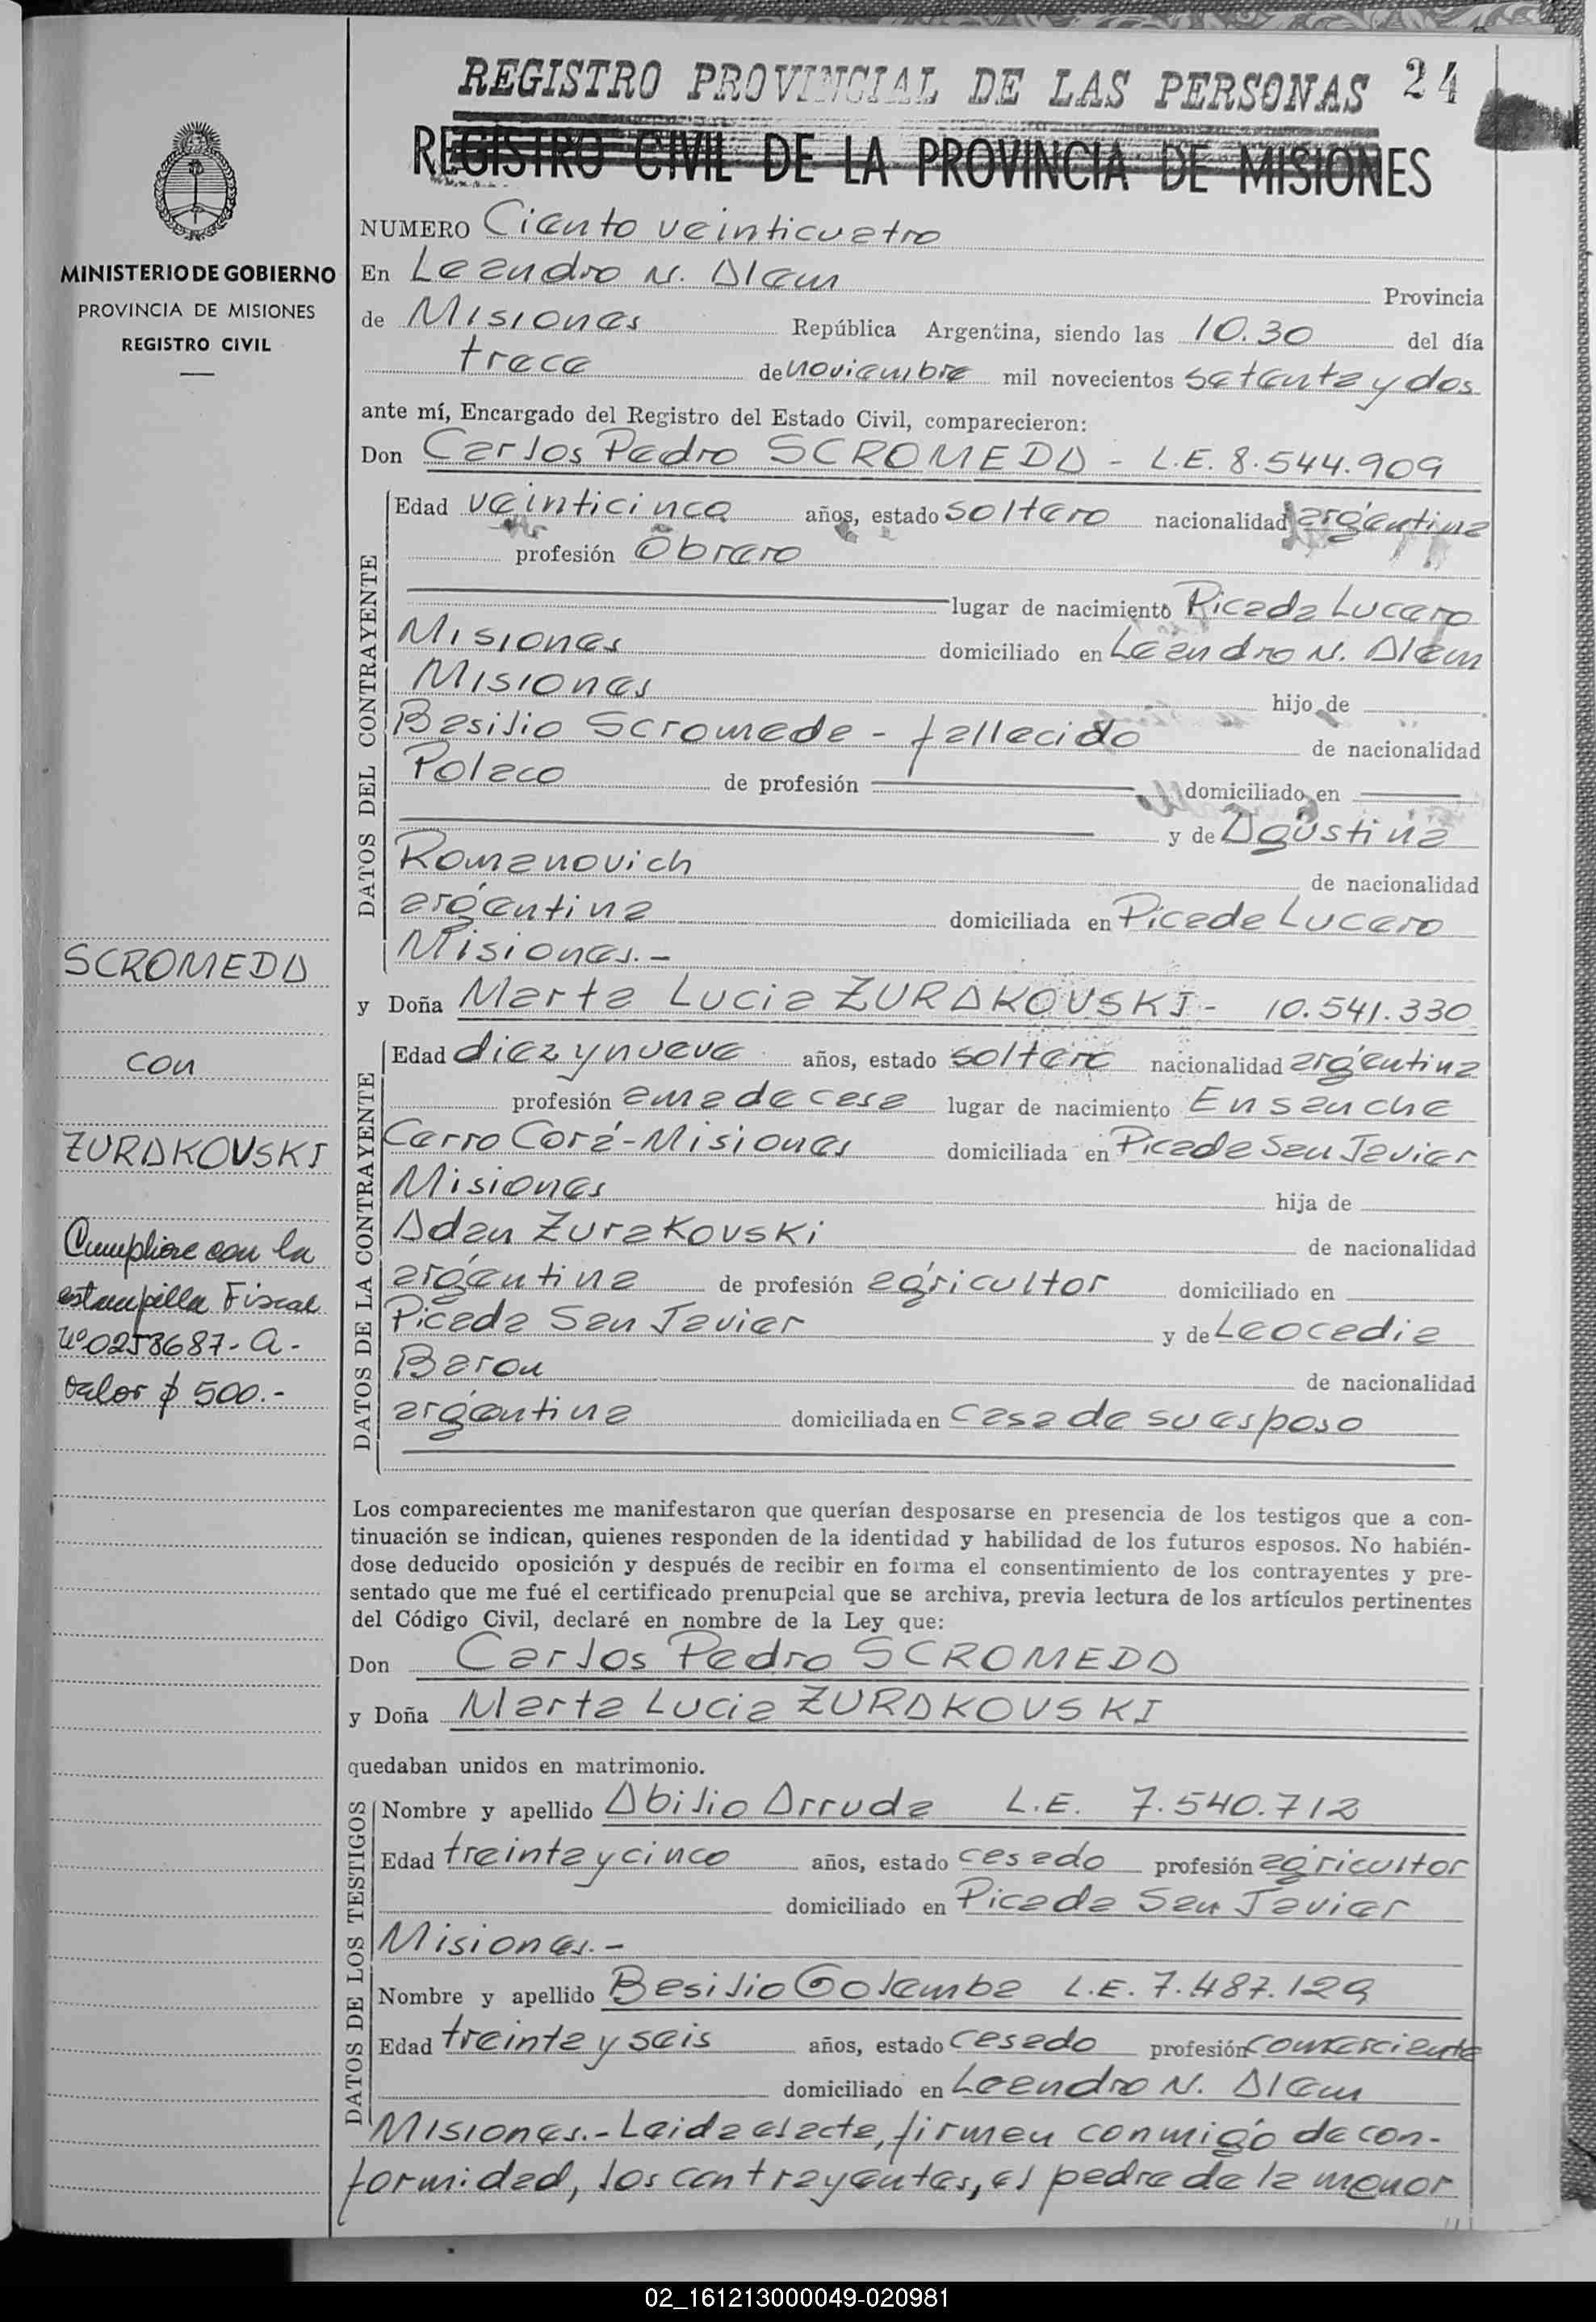 REGISTRO PROVINCIAL DE LAS PERSONAS 24
REGISTRO CIVIL DE LA PROVINCIA DE MISIONES
MINISTERIO DE GOBIERNO
PROVINCIA DE MISIONES
REGISTRO CIVIL
NUMERO Ciento veinticuatro
En Leandro N. Alem Provincia
de Misiones República Argentina, siendo las 10.30 del día
trece de noviembre mil novecientos setenta y dos
ante mí, Encargado del Registro del Estado Civil, comparecieron:
Don Carlos Pedro SCROMEDA - L.E. 8.544.909
DATOS DEL CONTRAYENTE
Edad veinticinco años, estado soltero nacionalidad argentina
profesión Obrero
lugar de nacimiento Picada Lucero
Misiones domiciliado en Leandro N. Alem
Misiones hijo de
Basilio Scromeda - fallecido de nacionalidad
Polaco de profesión domiciliado en
y de Agustina
Romanovich de nacionalidad
argentina domiciliada en Picada Lucero
Misiones.-
y Doña Marta Lucia ZURAKOVSKI - 10.541.330
DATOS DE LA CONTRAYENTE
Edad diez y nueve años, estado soltera nacionalidad argentina
profesión ama de casa lugar de nacimiento Ensanche
Cerro Corá - Misiones domiciliada en Picada San Javier
Misiones hija de
Adan Zurakovski de nacionalidad
argentina de profesión agricultor domiciliado en
Picada San Javier y de Leocadia
Baron de nacionalidad
argentina domiciliada en casa de su esposo
SCROMEDA
con
ZURAKOVSKI
Cumplióse con la
estampilla Fiscal
Nº 0258687-A-
valor $ 500.-
Los comparecientes me manifestaron que querían desposarse en presencia de los testigos que a con-
tinuación se indican, quienes responden de la identidad y habilidad de los futuros esposos. No habién-
dose deducido oposición y después de recibir en forma el consentimiento de los contrayentes y pre-
sentado que me fué el certificado prenupcial que se archiva, previa lectura de los artículos pertinentes
del Código Civil, declaré en nombre de la Ley que:
Don Carlos Pedro SCROMEDA
y Doña Marta Lucia ZURAKOVSKI
quedaban unidos en matrimonio.
DATOS DE LOS TESTIGOS
Nombre y apellido Abilio Arruda L.E. 7.540.712
Edad treinta y cinco años, estado casado profesión agricultor
domiciliado en Picada San Javier
Misiones.-
Nombre y apellido Basilio Golemba L.E. 7.487.129
Edad treinta y seis años, estado casado profesión comerciante
domiciliado en Leandro N. Alem
Misiones.- Leida el acta, firman conmigo de con-
formidad, los contrayentes, el padre de la menor
02_161213000049-020981